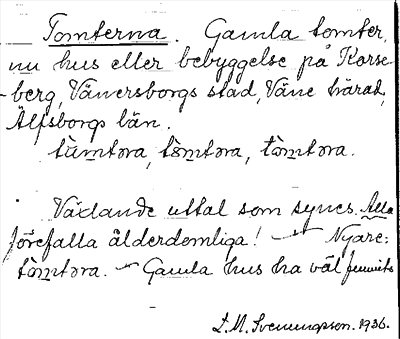 Tomterna. Gamla tomter,
nu hus eller bebyggelse på Korse-
berg, Vänersborgs stad, Väne härad,
Älfsborgs län.
tùmtəra, tòmtəra, tômtəra.
Växlande uttal som synes. Alla
förefalla ålderdomliga! — Nyare:
tòmtəra. — Gamla hus ha väl funnits
L. M. Svenungsson. 1936.